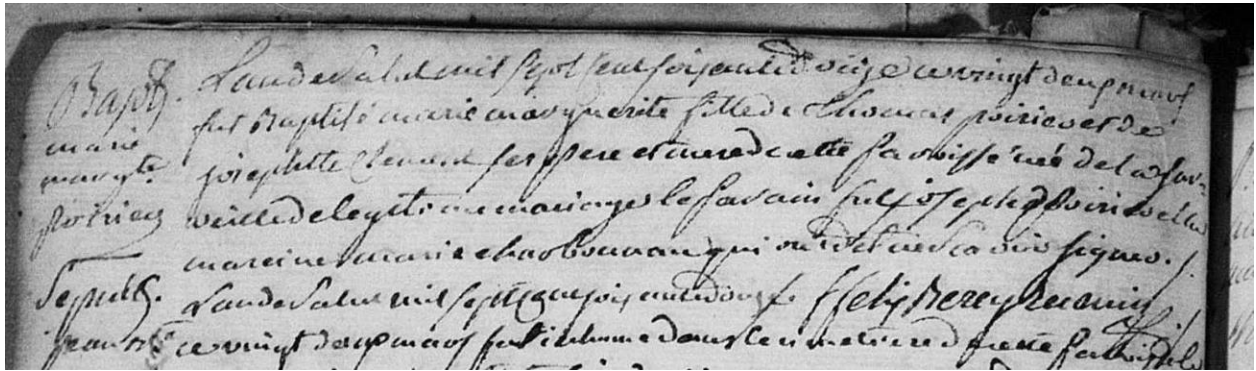 Bapt.
marie
margte
poirier
L'an de Salut mil Sept Cent soixante et douze ce vingt deux mars
fut Baptisé marie marguerite fille de thomas poirier et de
josephette Clement ses pere et mere de cette paroisse née de la sur-
veille de legitime mariage le parain fut joseph poirier et la
mareine marie charbonneau qui ont de signer.
Sepult.
jean
L'an de Salut mil Sept Cent soixante douze f. felix Berey
ce vingt deux mars fut inhumé dans le cimetiere de cette paroisse le